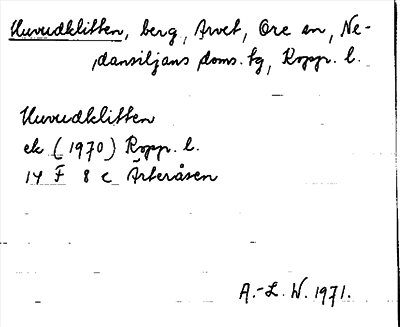 Huvudklitten, berg, Arvet, Ore sn, Ne-
dansiljans doms. tg, Kopp. l.
Huvudklitten
ek (1970) Kopp. l.
14 F 8 c Arteråsen
A.-L. W. 1971.